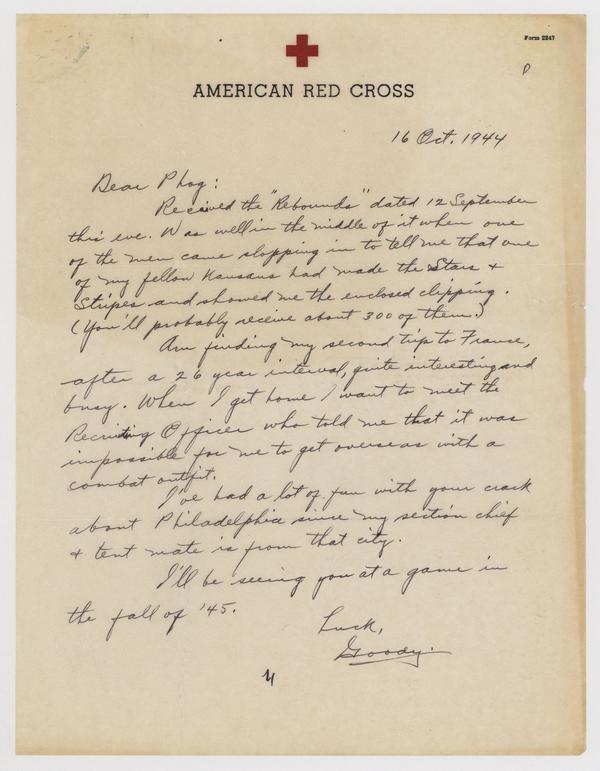 Form 2247
P
AMERICAN RED CROSS
16 Oct. 1944
Dear Phog:
Received the "Rebounds" dated 12 September
this eve. Was well in the middle of it when one
of the men came slopping in to tell me that one
of my fellow Kansans had made the Stars +
Stripes and showed me the enclosed clipping.
(You'll probably receive about 300 of them.)
Am finding my second trip to France,
after a 26 year interval, quite interesting and
busy. When I get home I want to meet the
Recruiting Officer who told me that it was
impossible for me to get overseas with a
combat outfit.
I've had a lot of fun with your crack
about Philadelphia since my section chief
+ tent mate is from that city.
I'll be seeing you at a game in
the fall of '45.
Luck,
Goody.